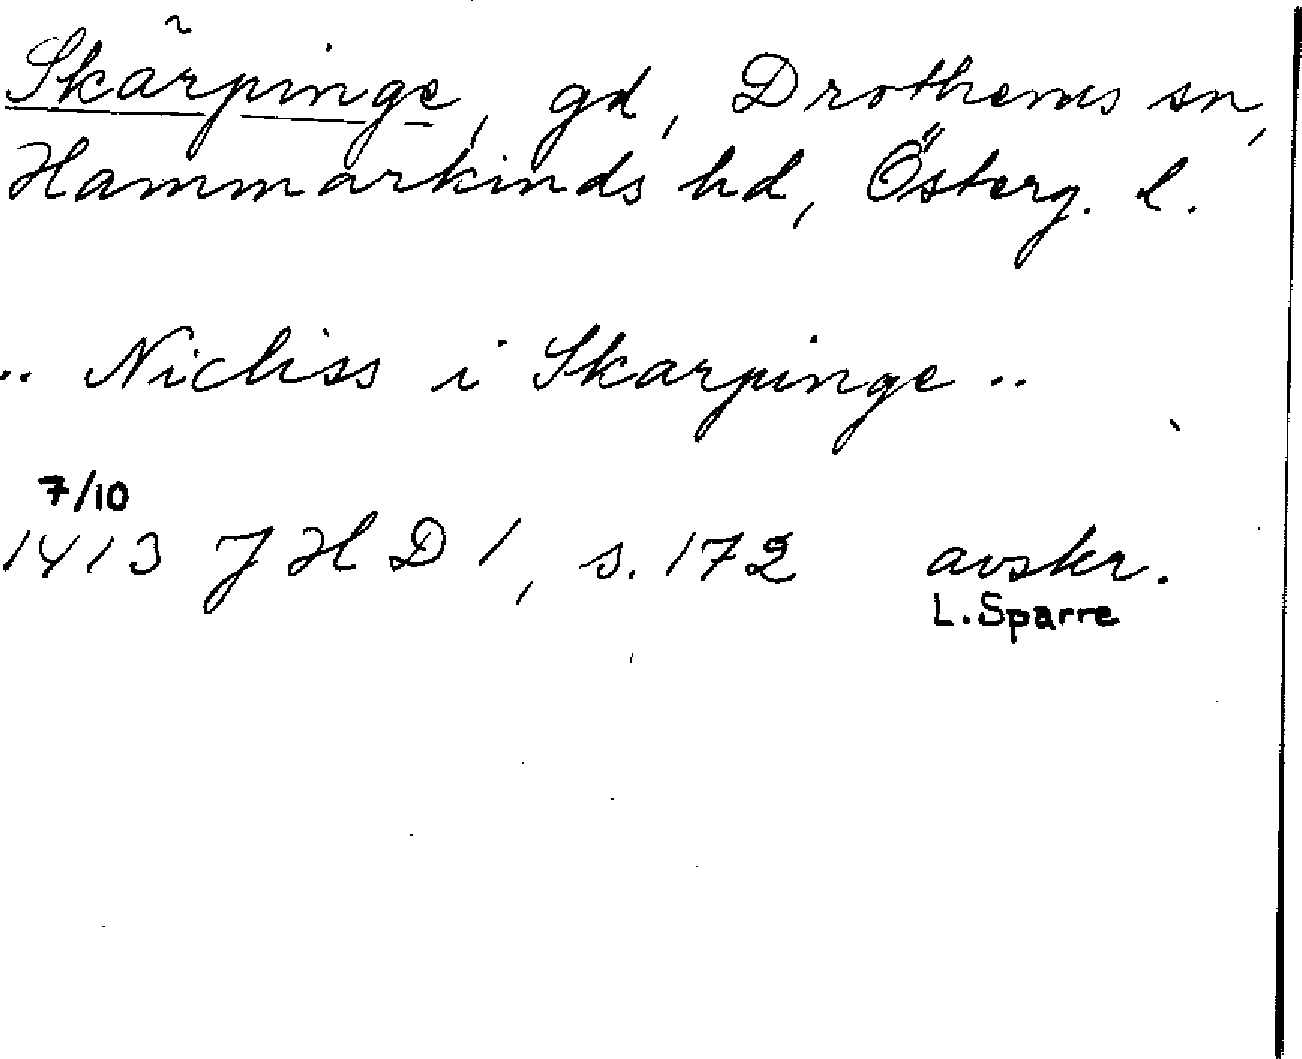 Skärpinge, gd, Drothems sn,
Hammarkinds hd, Österg. l.
.. Nicliss i Skarpinge ..
7/10
1413 JHD 1, s. 172 avskr.
L. Sparre